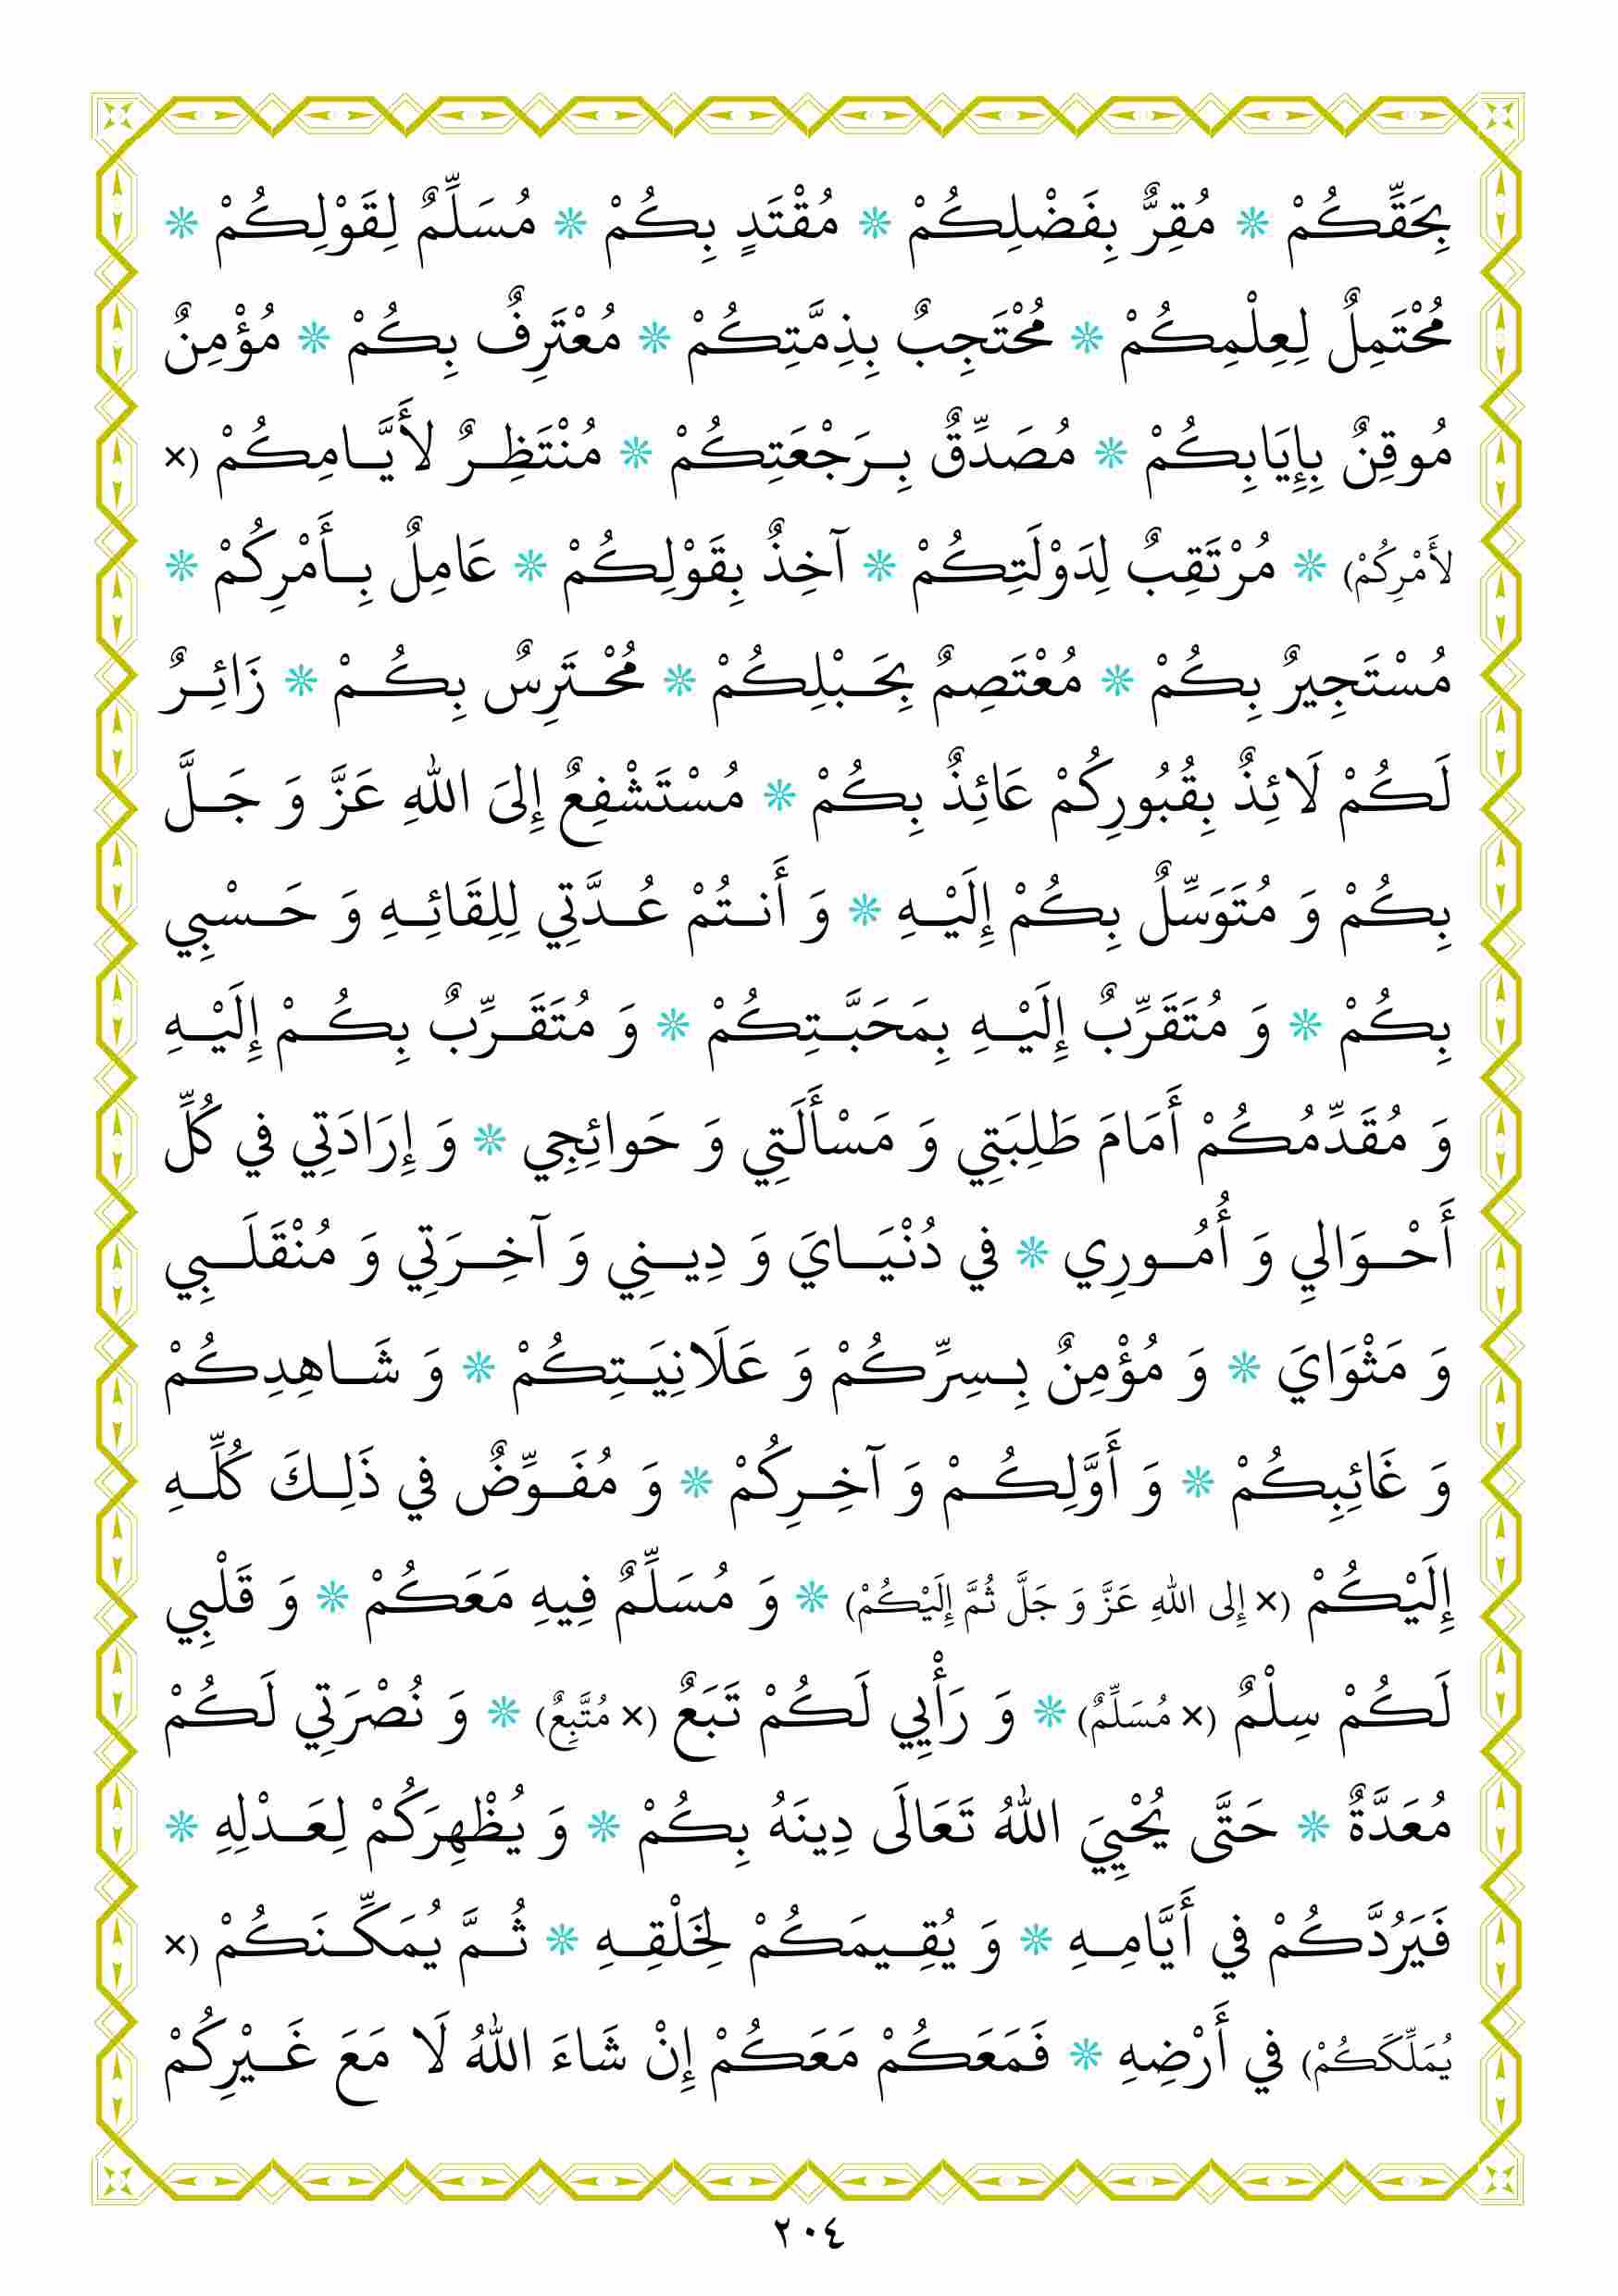 بِحَقِّكُمْ * مُقِرٌّ بِفَضْلِكُمْ * مُقْتَدٍ بِكُمْ * مُسَلِّمٌ لِقَوْلِكُمْ *
مُحْتَمِلٌ لِعِلْمِكُمْ * مُحْتَجِبٌ بِذِمَّتِكُمْ * مُعْتَرِفٌ بِكُمْ * مُؤْمِنٌ
مُوقِنٌ بِإِيَابِكُمْ * مُصَدِّقٌ بِرَجْعَتِكُمْ * مُنْتَظِرٌ لأَيَّامِكُمْ (×
لأَمْرِكُمْ) * مُرْتَقِبٌ لِدَوْلَتِكُمْ * آخِذٌ بِقَوْلِكُمْ * عَامِلٌ بِأَمْرِكُمْ *
مُسْتَجِيرٌ بِكُمْ * مُعْتَصِمٌ بِحَبْلِكُمْ * مُحْتَرِسٌ بِكُمْ * زَائِرٌ
لَكُمْ لَائِذٌ بِقُبُورِكُمْ عَائِذٌ بِكُمْ * مُسْتَشْفِعٌ إِلىَ اللهِ عَزَّ وَ جَلَّ
بِكُمْ وَ مُتَوَسِّلٌ بِكُمْ إِلَيْهِ * وَ أَنتُمْ عُدَّتِي لِلِقَائِهِ وَ حَسْبِي
بِكُمْ * وَ مُتَقَرِّبٌ إِلَيْهِ بِمَحَبَّتِكُمْ * وَ مُتَقَرِّبٌ بِكُمْ إِلَيْهِ
وَ مُقَدِّمُكُمْ أَمَامَ طَلِبَتِي وَ مَسْأَلَتِي وَ حَوائِجِي * وَ إِرَادَتِي في كُلِّ
أَحْوَالِي وَ أُمُورِي * في دُنْيَايَ وَ دِينِي وَ آخِرَتِي وَ مُنْقَلَبِي
وَ مَثْوَايَ * وَ مُؤْمِنٌ بِسِرِّكُمْ وَ عَلَانِيَتِكُمْ * وَ شَاهِدِكُمْ
وَ غَائِبِكُمْ * وَ أَوَّلِكُمْ وَ آخِرِكُمْ * وَ مُفَوِّضٌ في ذَلِكَ كُلِّهِ
إِلَيْكُمْ (× إِلى اللهِ عَزَّ وَ جَلَّ ثُمَّ إِلَيْكُمْ) * وَ مُسَلِّمٌ فِيهِ مَعَكُمْ * وَ قَلْبِي
لَكُمْ سِلْمٌ (× مُسَلِّمٌ) * وَ رَأْيِي لَكُمْ تَبَعٌ (× مُتَّبِعٌ) * وَ نُصْرَتِي لَكُمْ
مُعَدَّةٌ * حَتَّى يُحْيِيَ اللهُ تَعَالَى دِينَهُ بِكُمْ * وَ يُظْهِرَكُمْ لِعَدْلِهِ *
فَيَرُدَّكُمْ في أَيَّامِهِ * وَ يُقِيمَكُمْ لِخَلْقِهِ * ثُمَّ يُمَكِّنَكُمْ (×
يُمَلِّكَكُمْ) في أَرْضِهِ * فَمَعَكُمْ مَعَكُمْ إِنْ شَاءَ اللهُ لَا مَعَ غَيْرِكُمْ
٢٠٤